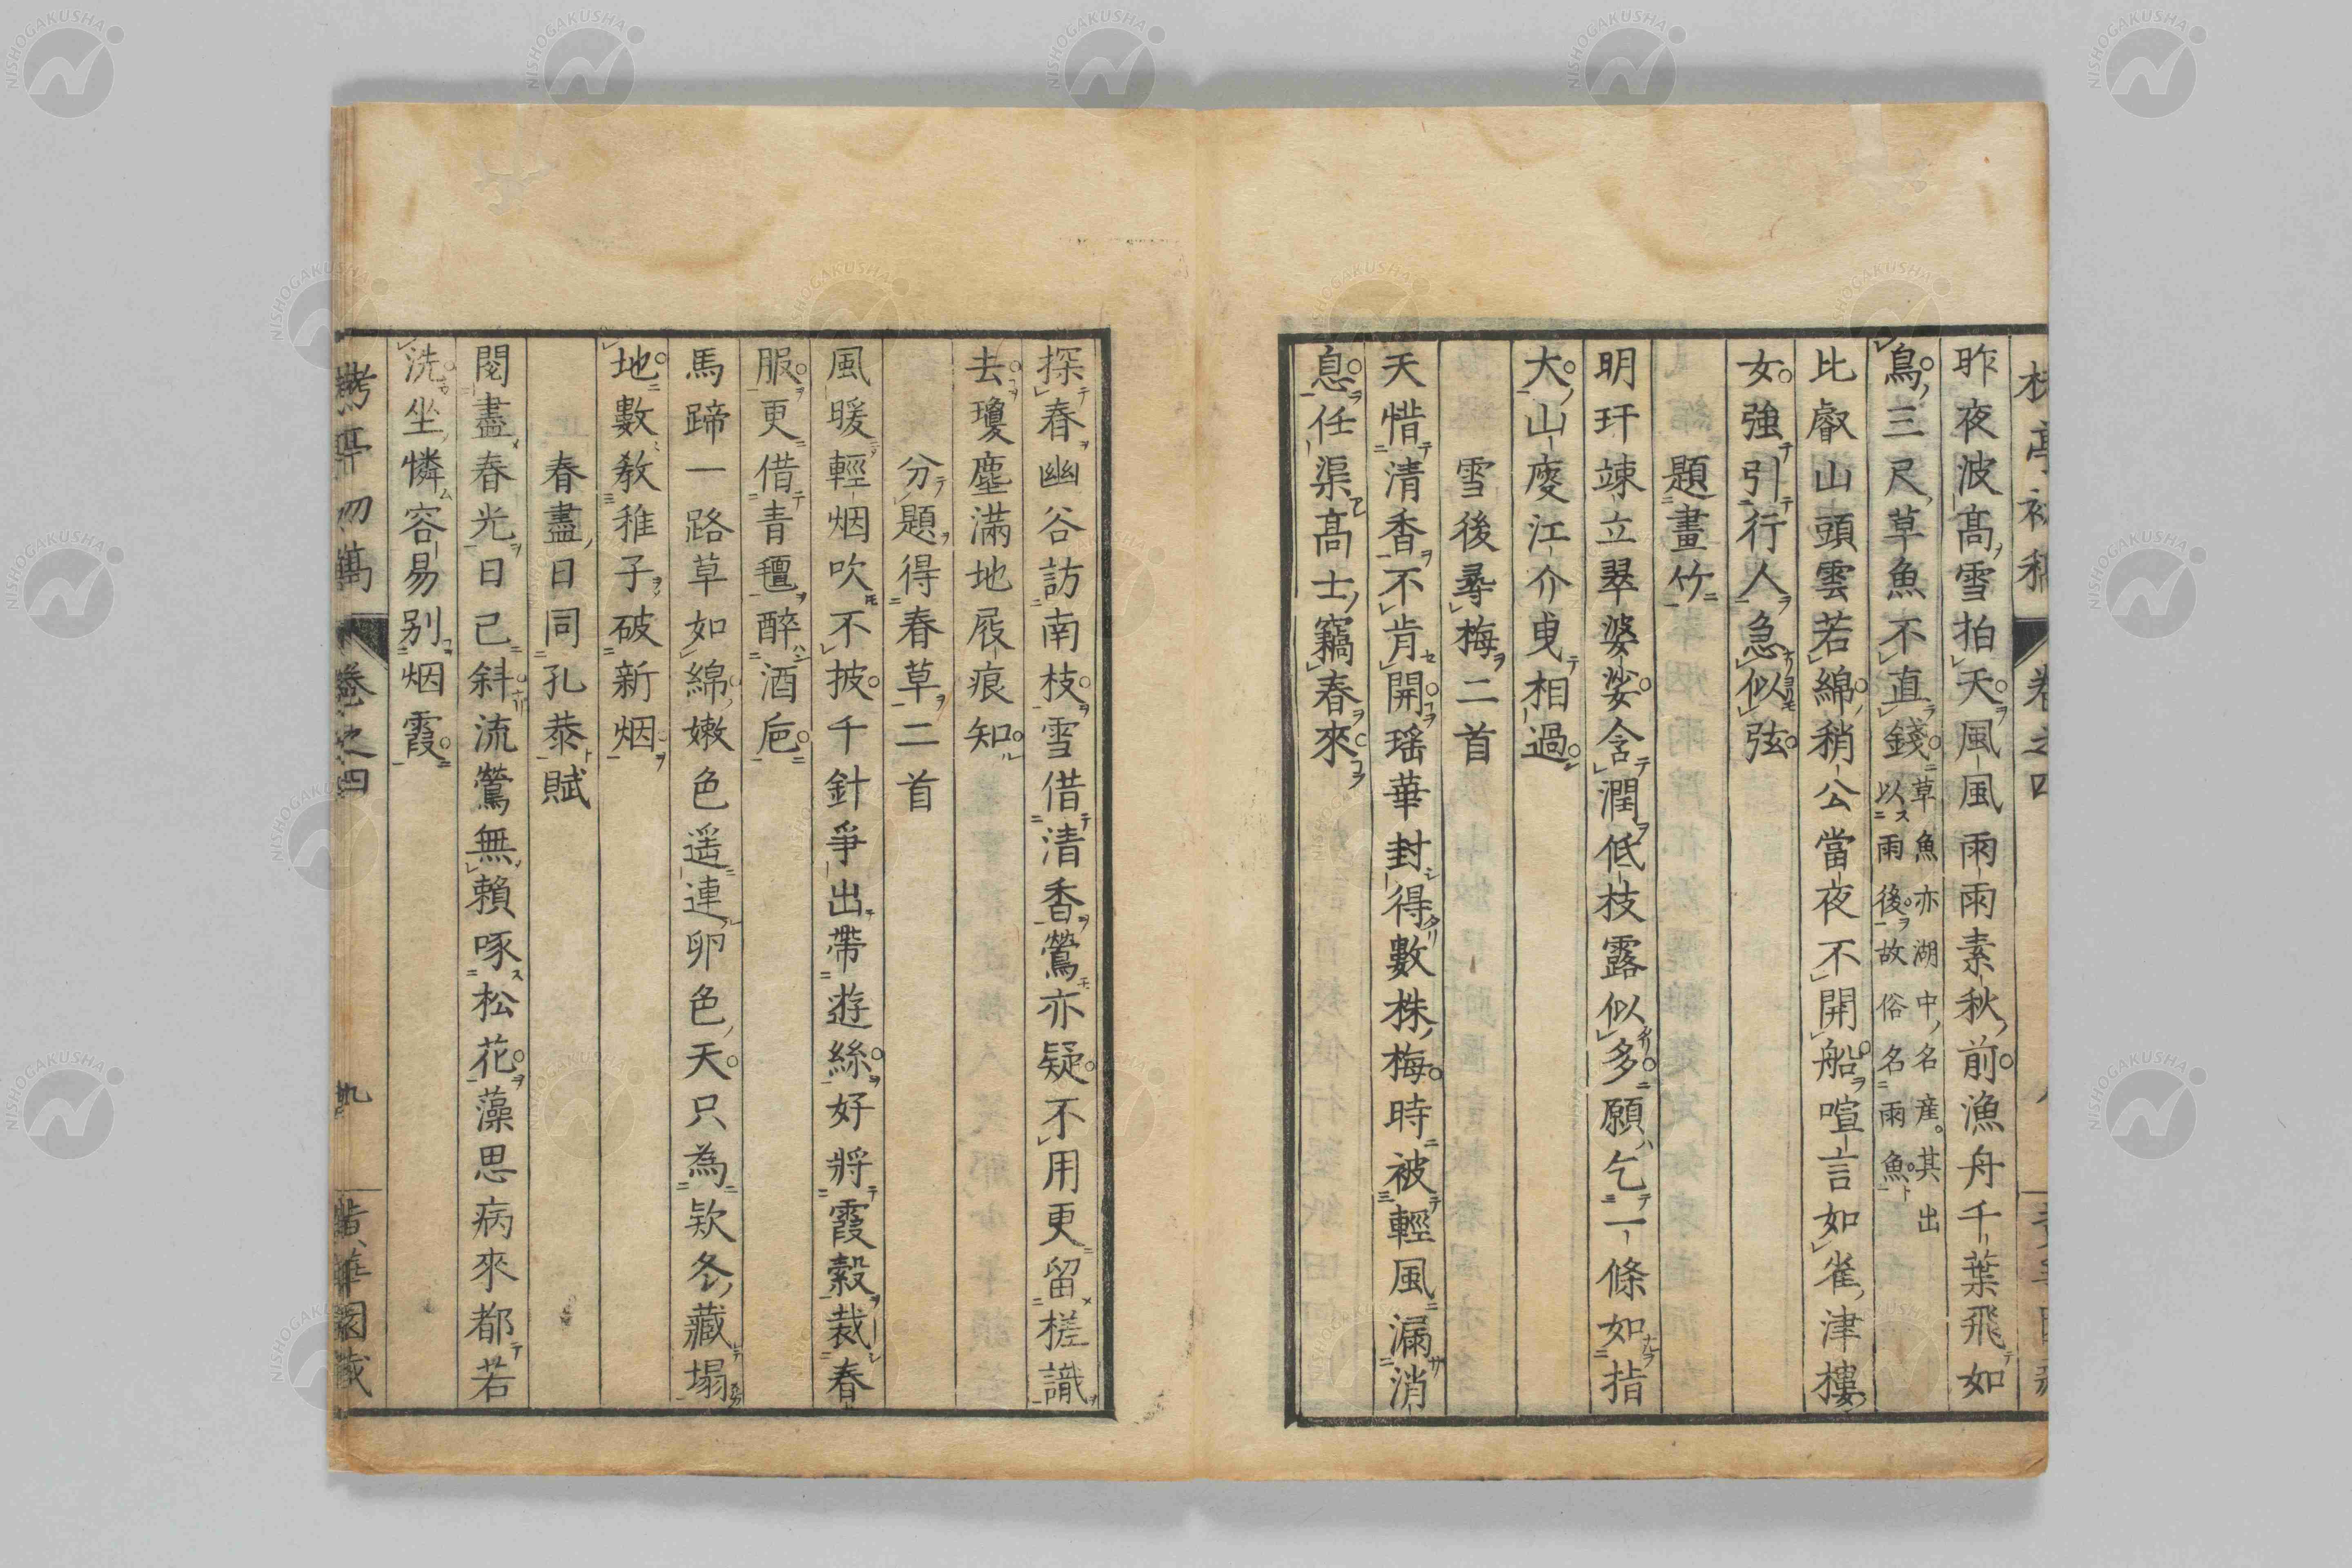 昨夜波高雪拍天風風雨雨素秋前漁舟千葉飛如
鳥三尺草魚不直錢草魚亦湖中名産其出
以雨後故俗名雨魚
比叡山頭雲若綿稍公當夜不開船喧言如雀津樓
女強引行人急似弦
題畫竹
明玕竦立翠婆娑含潤低枝露似多願乞一條如指
大山廋江介曳相過
雪後尋梅二首
天惜清香不肯開瑶華封得數株梅時被輕風漏消
息任渠高士竊春來
探春幽谷訪南枝雪借清香鶯亦疑不用更留槎識
去瓊塵滿地屐痕知
分題得春草二首
風暖輕烟吹不披千針爭出帶遊絲好將霞縠裁春
服更借青氊醉酒巵
馬蹄一路草如綿嫩色遥連卵色天只為欵冬藏塌
地數教稚子破新烟
春盡日同孔恭賦
閲盡春光日已斜流鶯無賴啄松花藻思病來都若
洗坐憐容易別烟霞
卷之四
九
NISHOGAKUSHA